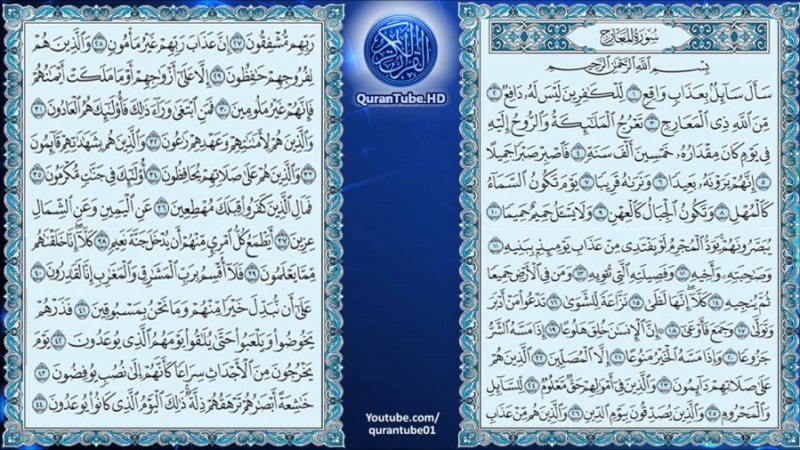 سُورَةُ المَعَارِجِ
بِسْمِ اللَّهِ الرَّحْمَٰنِ الرَّحِيمِ
سَأَلَ سَآئِلٌۢ بِعَذَابٍ وَاقِعٍ ١ لِّلْكَٰفِرِينَ لَيْسَ لَهُۥ دَافِعٌ ٢
مِّنَ ٱللَّهِ ذِي ٱلْمَعَارِجِ ٣ تَعْرُجُ ٱلْمَلَٰٓئِكَةُ وَٱلرُّوحُ إِلَيْهِ
فِي يَوْمٍ كَانَ مِقْدَارُهُۥ خَمْسِينَ أَلْفَ سَنَةٍ ٤ فَٱصْبِرْ صَبْرًا جَمِيلًا
٥ إِنَّهُمْ يَرَوْنَهُۥ بَعِيدًا ٦ وَنَرَىٰهُ قَرِيبًا ٧ يَوْمَ تَكُونُ ٱلسَّمَآءُ
كَٱلْمُهْلِ ٨ وَتَكُونُ ٱلْجِبَالُ كَٱلْعِهْنِ ٩ وَلَا يَسْـَٔلُ حَمِيمٌ حَمِيمًا ١٠
يُبَصَّرُونَهُمْ يَوَدُّ ٱلْمُجْرِمُ لَوْ يَفْتَدِي مِنْ عَذَابِ يَوْمِئِذٍۭ بِبَنِيهِ ١١
وَصَٰحِبَتِهِۦ وَأَخِيهِ ١٢ وَفَصِيلَتِهِ ٱلَّتِي تُـْٔوِيهِ ١٣ وَمَن فِي ٱلْأَرْضِ جَمِيعًا
ثُمَّ يُنجِيهِ ١٤ كَلَّآ إِنَّهَا لَظَىٰ ١٥ نَزَّاعَةً لِّلشَّوَىٰ ١٦ تَدْعُوا۟ مَنْ أَدْبَرَ
وَتَوَلَّىٰ ١٧ وَجَمَعَ فَأَوْعَىٰٓ ١٨ إِنَّ ٱلْإِنسَٰنَ خُلِقَ هَلُوعًا ١٩ إِذَا مَسَّهُ ٱلشَّرُّ
جَزُوعًا ٢٠ وَإِذَا مَسَّهُ ٱلْخَيْرُ مَنُوعًا ٢١ إِلَّا ٱلْمُصَلِّينَ ٢٢ ٱلَّذِينَ هُمْ
عَلَىٰ صَلَاتِهِمْ دَآئِمُونَ ٢٣ وَٱلَّذِينَ فِيٓ أَمْوَٰلِهِمْ حَقٌّ مَّعْلُومٌ ٢٤ لِّلسَّآئِلِ
وَٱلْمَحْرُومِ ٢٥ وَٱلَّذِينَ يُصَدِّقُونَ بِيَوْمِ ٱلدِّينِ ٢٦ وَٱلَّذِينَ هُم مِّنْ عَذَابِ
القرآن الكريم
QuranTube.HD
Youtube.com/
qurantube01
رَبِّهِم مُّشْفِقُونَ ٢٧ إِنَّ عَذَابَ رَبِّهِمْ غَيْرُ مَأْمُونٍ ٢٨ وَٱلَّذِينَ هُمْ
لِفُرُوجِهِمْ حَٰفِظُونَ ٢٩ إِلَّا عَلَىٰٓ أَزْوَٰجِهِمْ أَوْ مَا مَلَكَتْ أَيْمَٰنُهُمْ
فَإِنَّهُمْ غَيْرُ مَلُومِينَ ٣٠ فَمَنِ ٱبْتَغَىٰ وَرَآءَ ذَٰلِكَ فَأُو۟لَٰٓئِكَ هُمُ ٱلْعَادُونَ ٣١
وَٱلَّذِينَ هُمْ لِأَمَٰنَٰتِهِمْ وَعَهْدِهِمْ رَٰعُونَ ٣٢ وَٱلَّذِينَ هُم بِشَهَٰدَٰتِهِمْ قَآئِمُونَ
٣٣ وَٱلَّذِينَ هُمْ عَلَىٰ صَلَاتِهِمْ يُحَافِظُونَ ٣٤ أُو۟لَٰٓئِكَ فِي جَنَّٰتٍ مُّكْرَمُونَ ٣٥
فَمَالِ ٱلَّذِينَ كَفَرُوا۟ قِبَلَكَ مُهْطِعِينَ ٣٦ عَنِ ٱلْيَمِينِ وَعَنِ ٱلشِّمَالِ
عِزِينَ ٣٧ أَيَطْمَعُ كُلُّ ٱمْرِئٍ مِّنْهُمْ أَن يُدْخَلَ جَنَّةَ نَعِيمٍ ٣٨ كَلَّآ إِنَّا خَلَقْنَٰهُم
مِّمَّا يَعْلَمُونَ ٣٩ فَلَآ أُقْسِمُ بِرَبِّ ٱلْمَشَٰرِقِ وَٱلْمَغَٰرِبِ إِنَّا لَقَٰدِرُونَ ٤٠
عَلَىٰٓ أَن نُّبَدِّلَ خَيْرًا مِّنْهُمْ وَمَا نَحْنُ بِمَسْبُوقِينَ ٤١ فَذَرْهُمْ
يَخُوضُوا۟ وَيَلْعَبُوا۟ حَتَّىٰ يُلَٰقُوا۟ يَوْمَهُمُ ٱلَّذِي يُوعَدُونَ ٤٢ يَوْمَ
يَخْرُجُونَ مِنَ ٱلْأَجْدَاثِ سِرَاعًا كَأَنَّهُمْ إِلَىٰ نُصُبٍ يُوفِضُونَ ٤٣
خَٰشِعَةً أَبْصَٰرُهُمْ تَرْهَقُهُمْ ذِلَّةٌ ذَٰلِكَ ٱلْيَوْمُ ٱلَّذِي كَانُوا۟ يُوعَدُونَ ٤٤